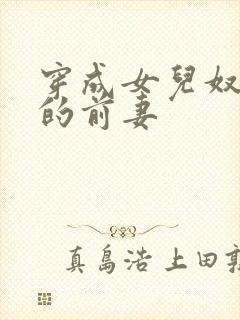 穿成女兒奴
的前妻
真島浩 上田敦